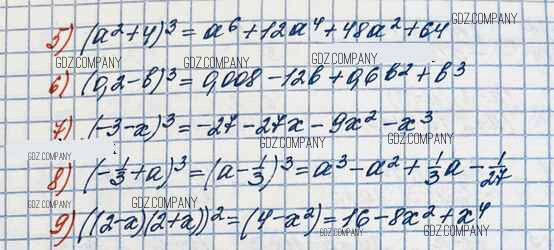 5) (a²+4)³ = a⁶+12a⁴+48a²+64
GDZ.COMPANY
GDZ.COMPANY GDZ.COMPANY GDZ.COMPANY
6) (0,2-b)³ = 0,008-12b+0,6b²+b³
GDZ.COMPANY GDZ.COMPANY
7) (-3-x)³ = -27-27x-9x²-x³
GDZ.COMPANY GDZ.COMPANY
8) (-1/3+a)³ = (a-1/3)³ = a³-a²+1/3a-1/27
GDZ.COMPANY GDZ.COMPANY
9) ((2-x)(2+x))² = (4-x²) = 16-8x²+x⁴
GDZ.COMPANY GDZ.COMPANY GDZ.COMPANY